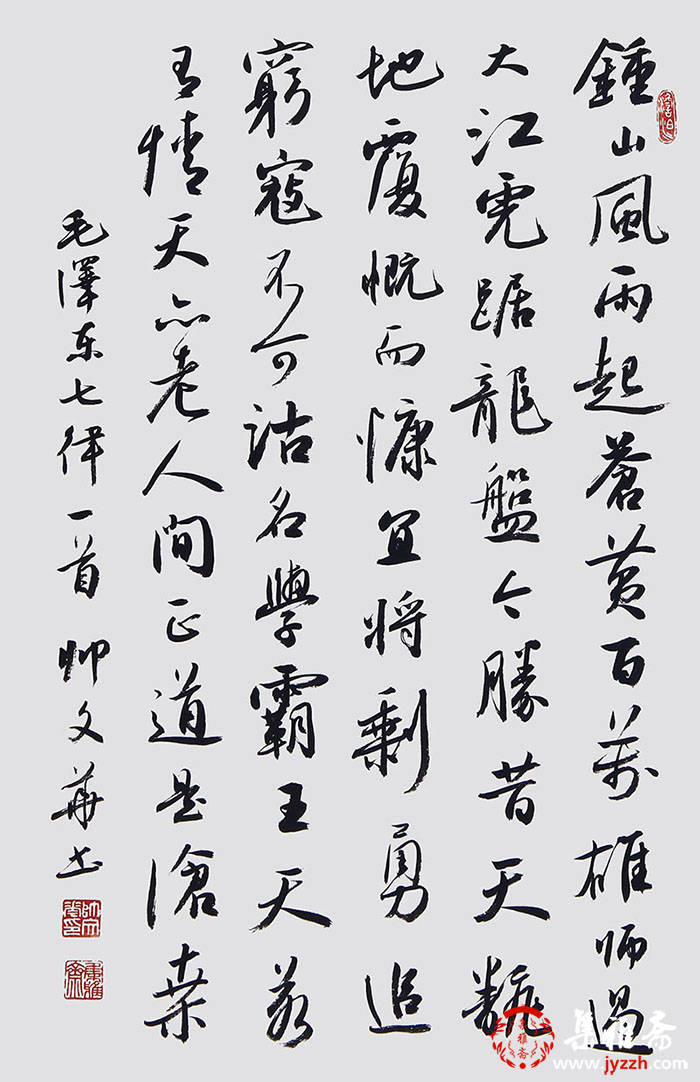 鍾山風雨起蒼黃百萬雄师過
大江虎踞龍盤今勝昔天翻
地覆慨而慷宜将剩勇追
窮寇不可沽名學霸王天若
有情天亦老人間正道是滄桒
毛澤东七律一首 帅文華书
集雅斋
www.jyzzh.com